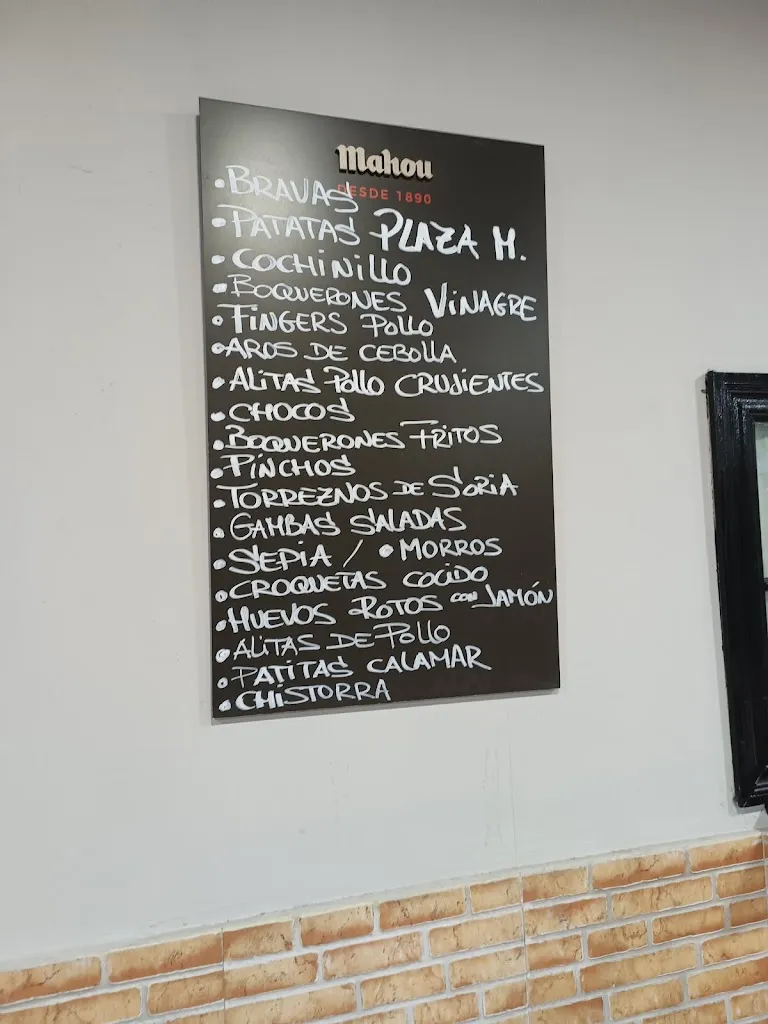 Mahou
DESDE 1890
• BRAVAS
• PATATAS PLAZA M.
• COCHINILLO
• BOQUERONES VINAGRE
• FINGERS POLLO
• AROS DE CEBOLLA
• ALITAS POLLO CRUJIENTES
• CHOCOS
• BOQUERONES FRITOS
• PINCHOS
• TORREZNOS DE SORIA
• GAMBAS SALADAS
• SEPIA / • MORROS
• CROQUETAS COCIDO
• HUEVOS ROTOS CON JAMÓN
• ALITAS DE POLLO
• PATITAS CALAMAR
• CHISTORRA